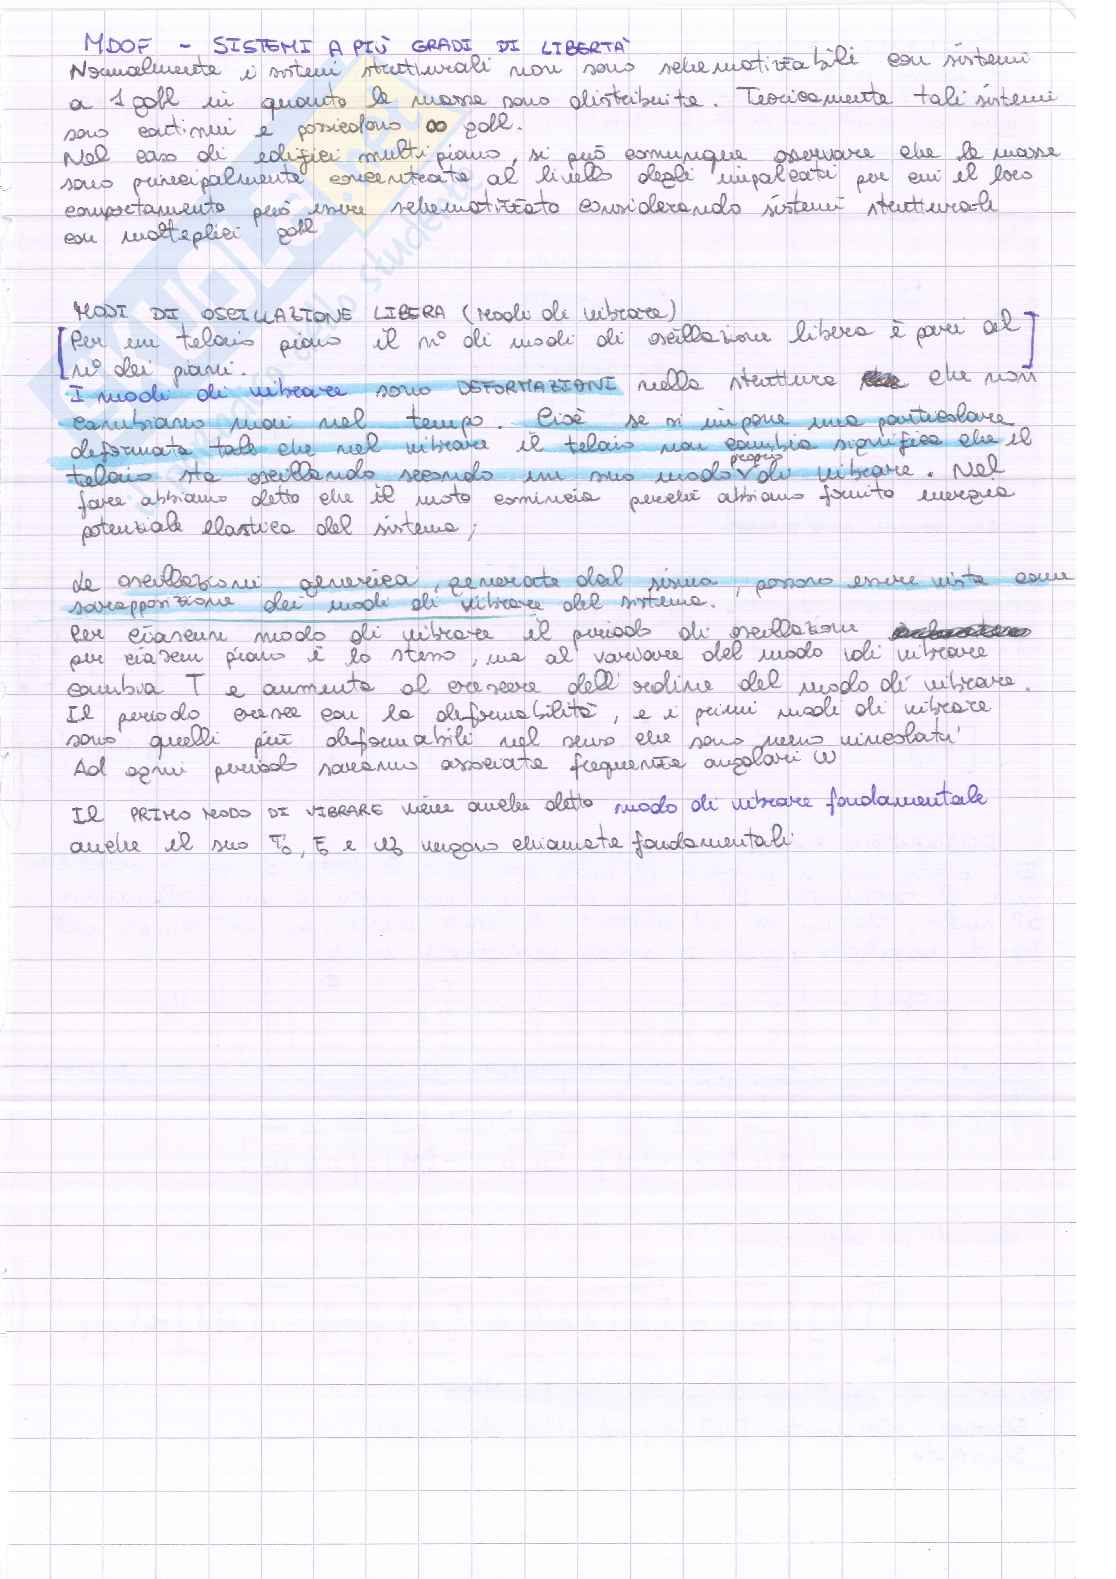 MDOF - SISTEMI A PIÙ GRADI DI LIBERTA'
Normalmente i sistemi strutturali non sono schematizzabili con sistemi
a 1 gdl in quanto le masse sono distribuite. Teoricamente tali sistemi
sono continui e possiedono ∞ gdl.
Nel caso di edifici multipiano, si può comunque osservare che le masse
sono principalmente concentrate al livello degli impalcati per cui il loro
comportamento può essere schematizzato considerando sistemi strutturali
con molteplici gdl
MODI DI OSCILLAZIONE LIBERA (modi di vibrare)
[Per un telaio piano il n° di modi di oscillazione libera è pari al
n° dei piani.]
I modi di vibrare sono DEFORMAZIONI nella struttura che non
cambiano mai nel tempo. Cioè se si impone una particolare
deformata tale che nel vibrare il telaio non cambia significa che il
telaio sta oscillando secondo un suo modo proprio di vibrare. Nel
fare abbiamo detto che il moto comincia perché abbiamo fornito energia
potenziale elastica al sistema;
Le oscillazioni generica, generate dal sisma, possono essere viste come
sovrapposizione dei modi di vibrare del sistema.
Per ciascun modo di vibrare il periodo di oscillazione
per ciascun piano è lo stesso, ma al variare del modo di vibrare
cambia T e aumenta al crescere dell'ordine del modo di vibrare.
Il periodo cresce con la deformabilità, e i primi modi di vibrare
sono quelli più deformabili nel senso che sono meno vincolati
Ad ogni periodo saranno associate frequenze angolari ω
Il PRIMO MODO DI VIBRARE viene anche detto modo di vibrare fondamentale
anche il suo T₀, e vengono chiamate fondamentali
SKUOLA.net
dello studente